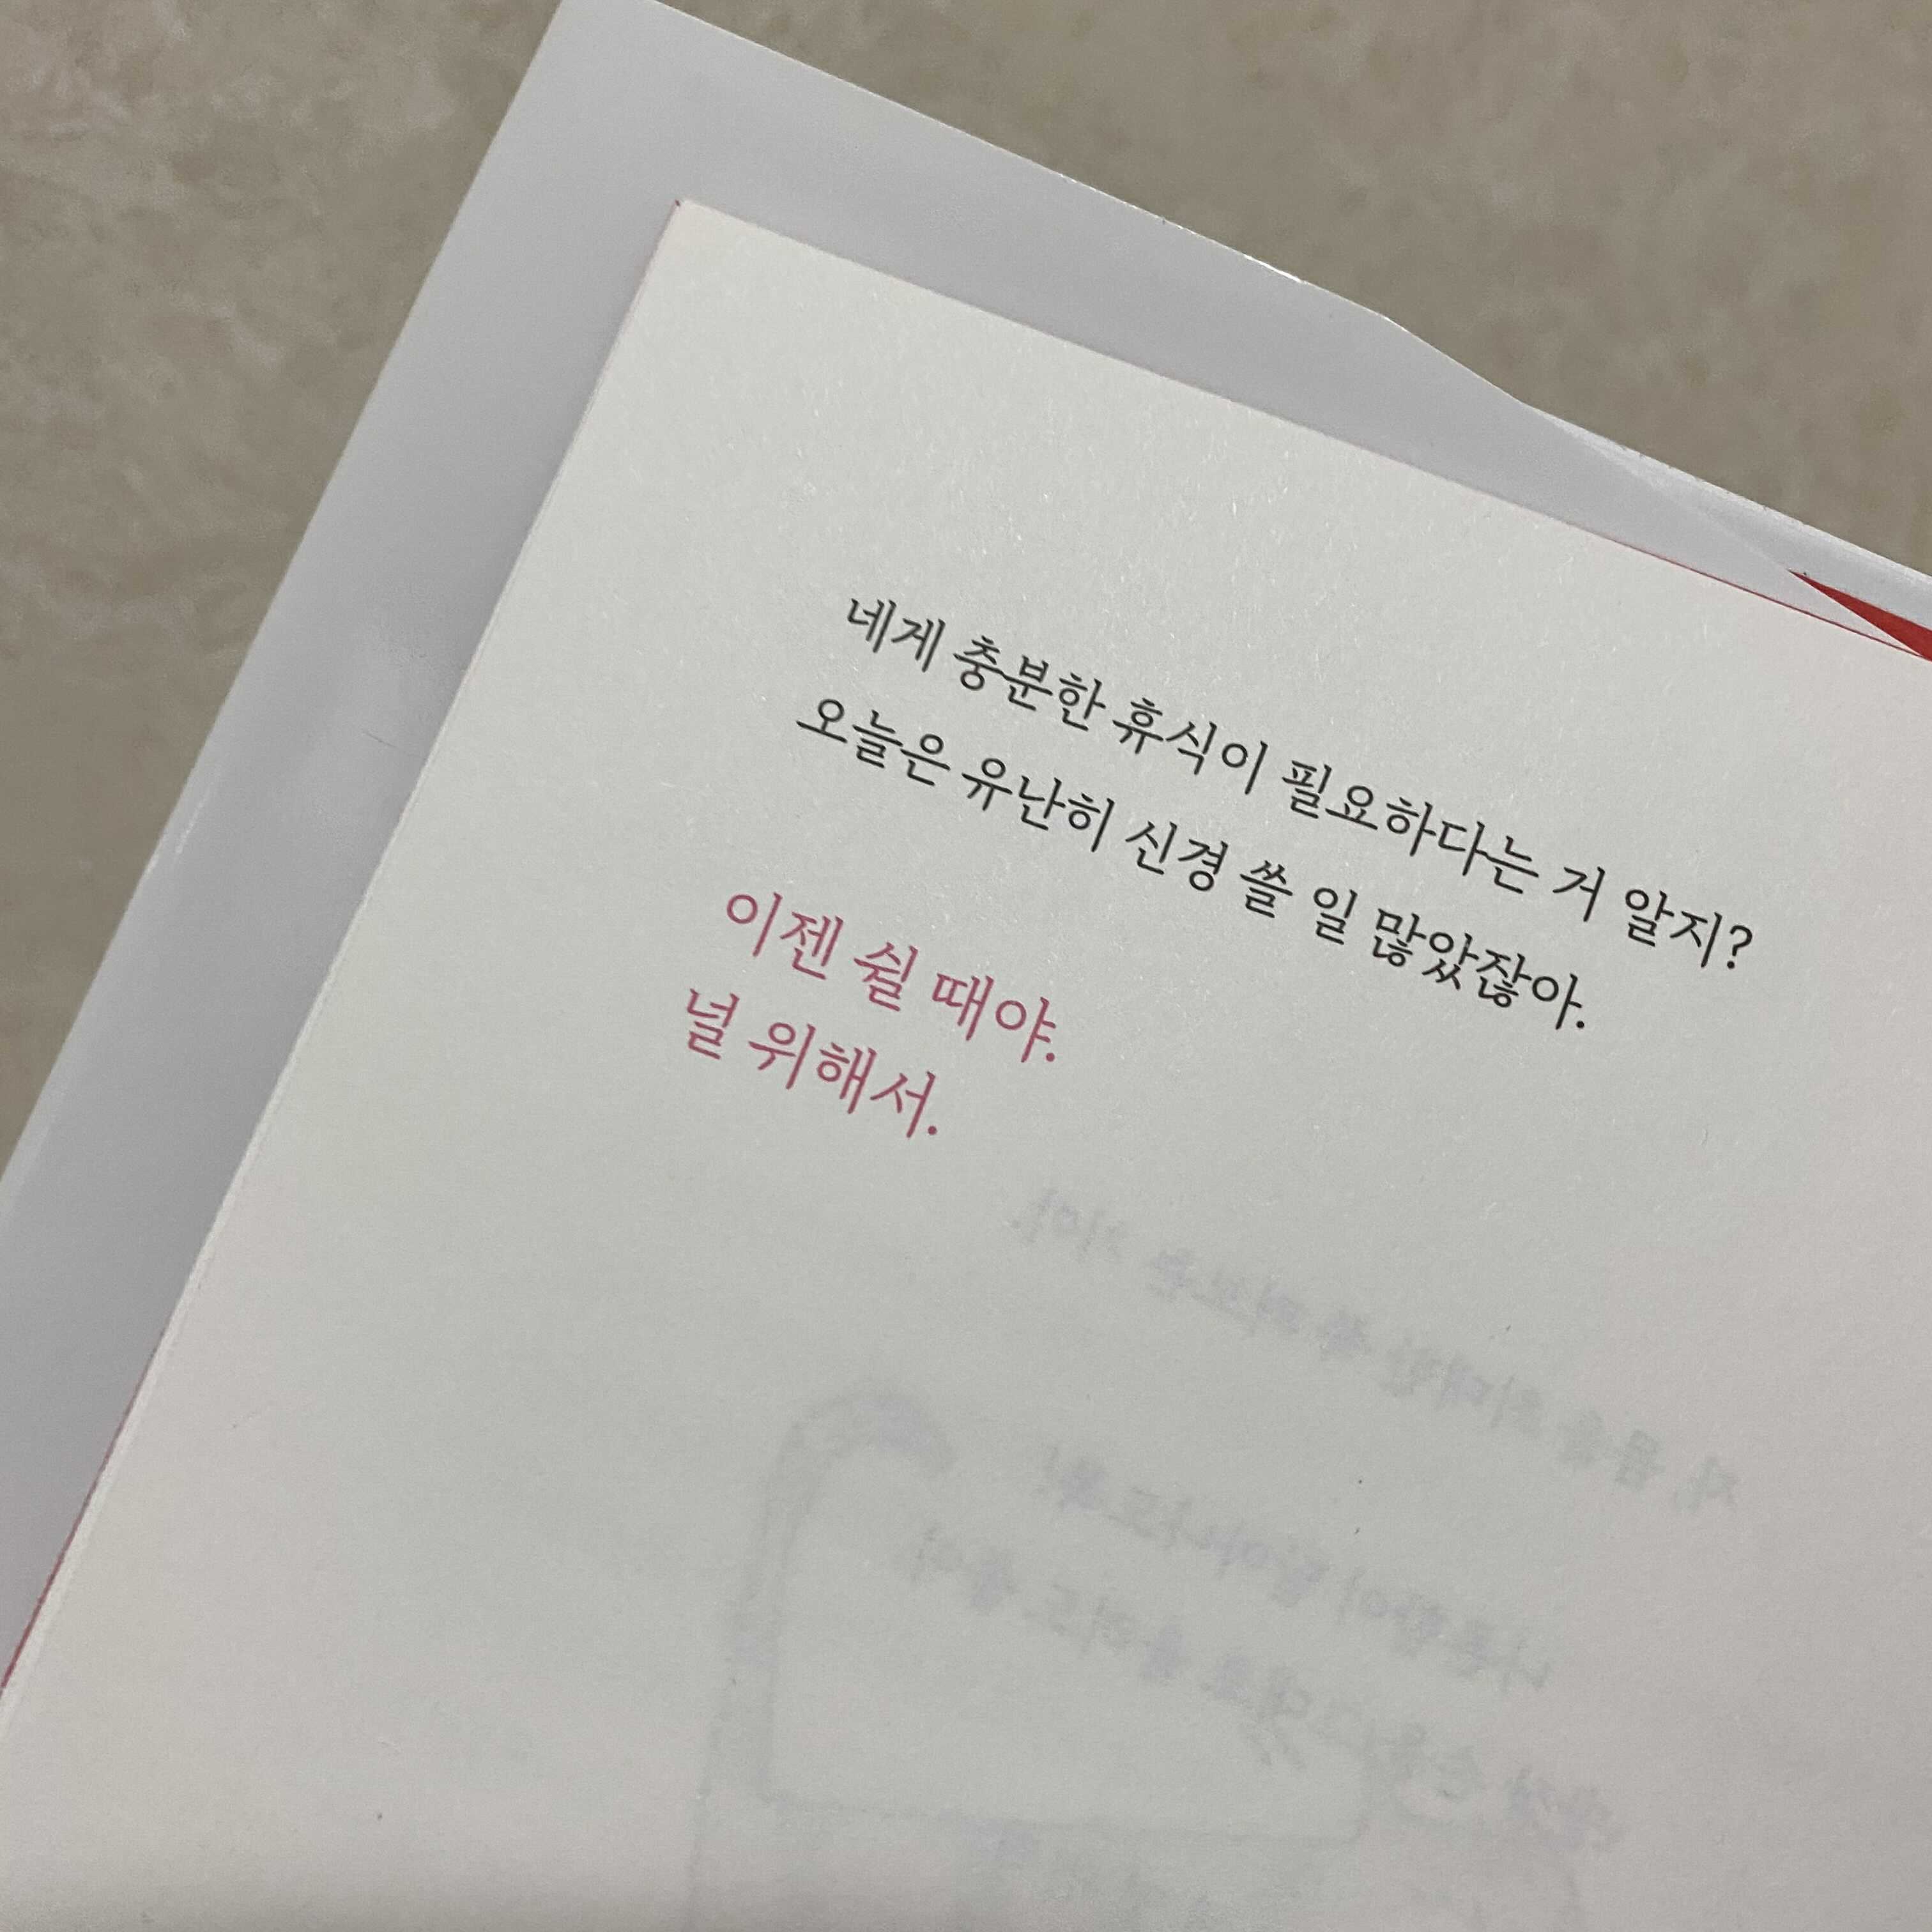 네게 충분한 휴식이 필요하다는 거 알지?
오늘은 유난히 신경 쓸 일 많았잖아.
이젠 쉴 때야.
널 위해서.